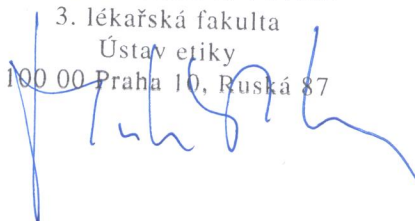 3. lékařská fakulta
Ústav etiky
100 00 Praha 10, Ruská 87